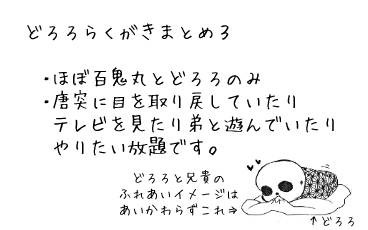 どろろらくがきまとめ3
・ほぼ百鬼丸とどろろのみ
・唐突に目を取り戻していたり
テレビを見たり弟と遊んでいたり
やりたい放題です。
どろろと兄貴の
ふれあいイメージは
あいかわらずこれ⇒
↑どろろ